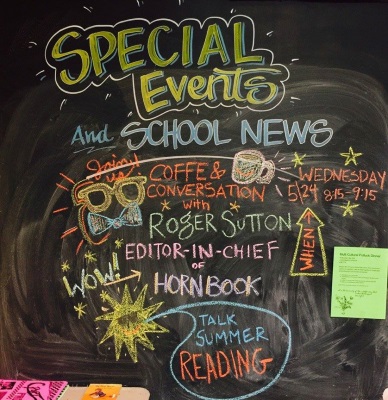 SPECIAL
Events
And SCHOOL NEWS
Join us
COFFE &
CONVERSATION
with
ROGER SUTTON
EDITOR-IN-CHIEF
OF
HORNBOOK
WEDNESDAY
5/24 8:15-9:15
WHEN
WOW!
TALK
SUMMER
READING